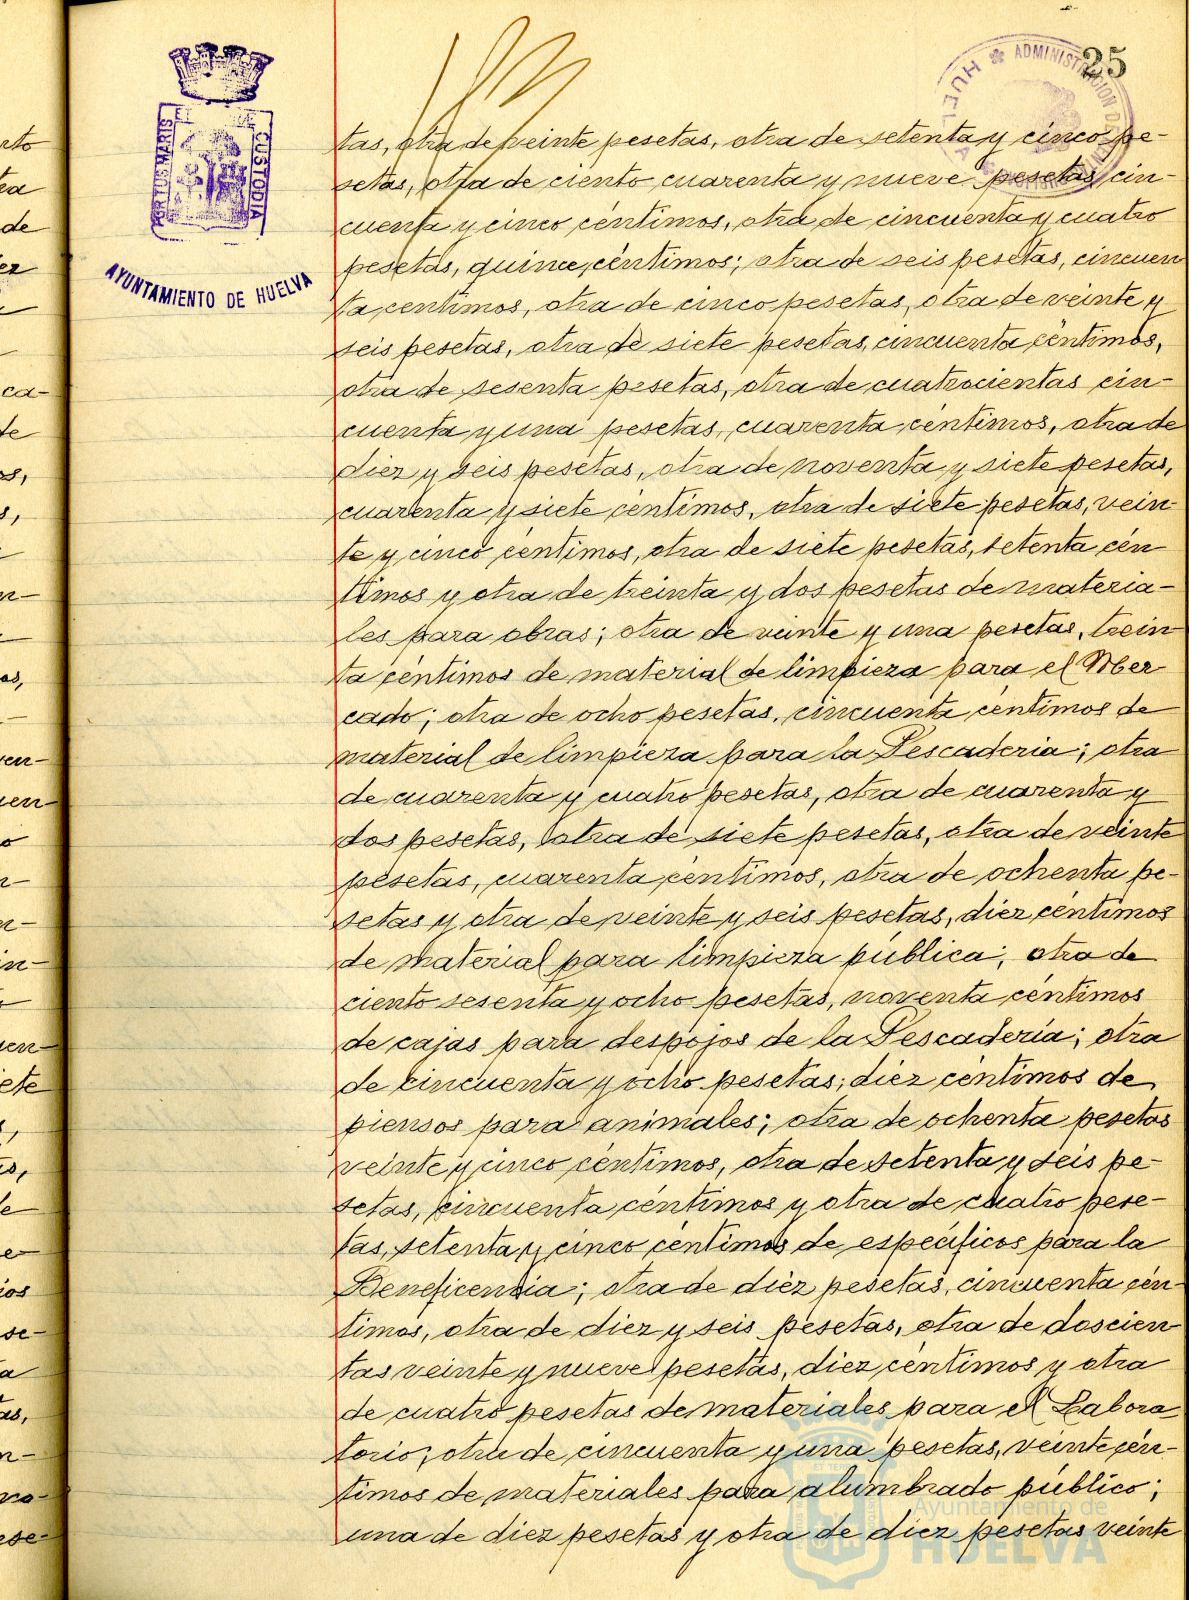 25
PORTUS MARIS
CUSTODIA
AYUNTAMIENTO DE HUELVA
ADMINISTRACION
HUELVA
tas, otra de veinte pesetas, otra de setenta y cinco pe-
setas, otra de ciento cuarenta y nueve pesetas cin-
cuenta y cinco céntimos, otra de cincuenta y cuatro
pesetas, quince céntimos; otra de seis pesetas, cincuen
ta centimos, otra de cinco pesetas, otra de veinte y
seis pesetas, otra de siete pesetas, cincuenta céntimos,
otra de sesenta pesetas, otra de cuatrocientas cin-
cuenta y una pesetas, cuarenta céntimos, otra de
diez y seis pesetas, otra de noventa y siete pesetas,
cuarenta y siete céntimos, otra de siete pesetas, vein-
te y cinco céntimos, otra de siete pesetas, setenta cén
timos y otra de treinta y dos pesetas de materia-
les para obras; otra de veinte y una pesetas, trein
ta céntimos de material de limpieza para el Mer
cado; otra de ocho pesetas, cincuenta céntimos de
material de limpieza para la Pescaderia; otra
de cuarenta y cuatro pesetas, otra de cuarenta y
dos pesetas, otra de siete pesetas, otra de veinte
pesetas, cuarenta céntimos, otra de ochenta pe-
setas y otra de veinte y seis pesetas, diez céntimos
de material para limpieza pública; otra de
ciento sesenta y ocho pesetas, noventa céntimos
de cajas para despojos de la Pescadería; otra
de cincuenta y ocho pesetas; diez céntimos de
piensos para animales; otra de ochenta pesetas
veinte y cinco céntimos, otra de setenta y seis pe-
setas, cincuenta céntimos y otra de cuatro pese-
tas, setenta y cinco céntimos de específicos para la
Beneficencia; otra de diez pesetas, cincuenta cén-
timos, otra de diez y seis pesetas, otra de doscien-
tas veinte y nueve pesetas, diez céntimos y otra
de cuatro pesetas de materiales para el Labora
torio; otra de cincuenta y una pesetas, veinte cén-
timos de materiales para alumbrado público;
una de diez pesetas y otra de diez pesetas veinte
Ayuntamiento de
HUELVA